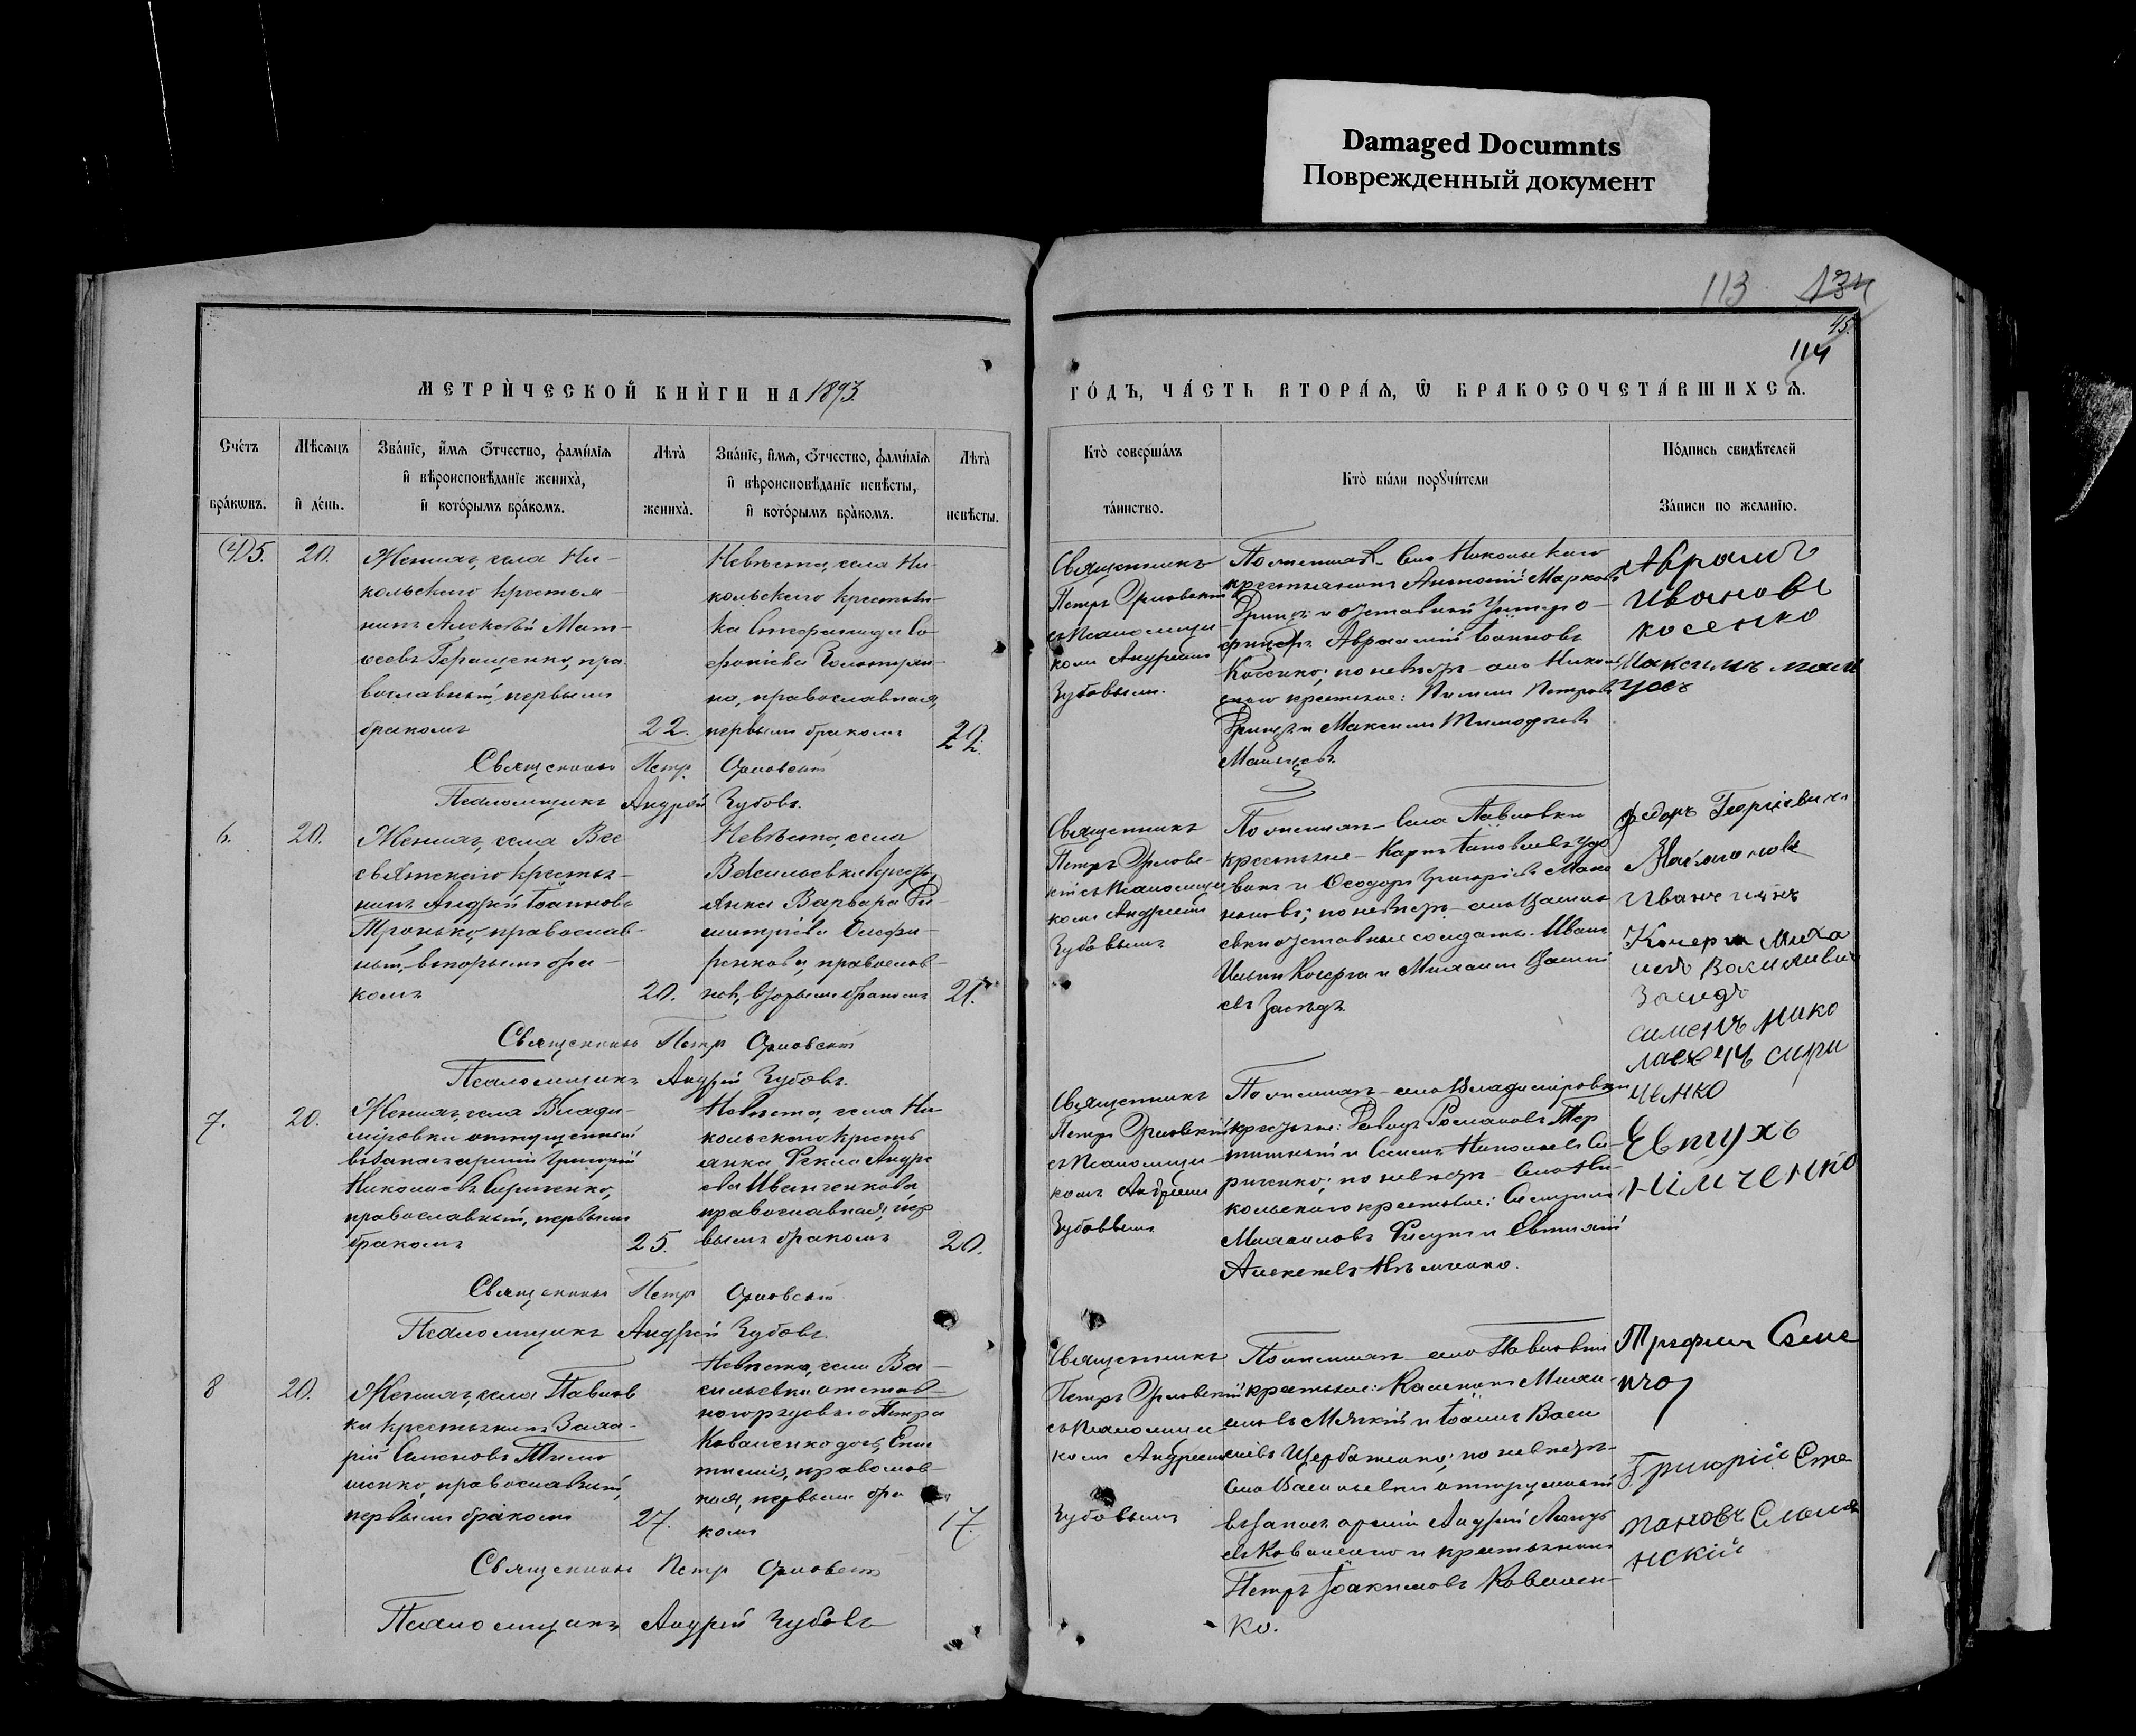 Damaged Documnts
Поврежденный документ
113
134
45.
114
МЕТРИ́ЧЕСКОЙ КНИ́ГИ НА 1893
ГО́ДЪ, ЧА́СТЬ ВТОРА́Ѧ, Ѿ БРАКОСОЧЕТА́ВШИХСѦ.
Сче́тъ бра́кѡвъ.
Мѣ́сѧцъ и҆ де́нь.
Зва́нїе, и҆́мѧ ѻ҆́тчество, фами́лїѧ
и҆ вѣроисповѣ́данїе жениха̀,
и҆ кото́рымъ бра́комъ.
Лѣта̀ жениха̀.
Зва́нїе, и҆́мѧ, ѻ҆́тчество, фами́лїѧ
и҆ вѣроисповѣ́данїе невѣ́сты,
и҆ кото́рымъ бра́комъ.
Лѣта̀ невѣ́сты.
Кто̀ соверша́лъ
та́инство.
Кто̀ бы́ли порꙋчи́тели
По́дпись свидѣ́телей
За́писи по жела́нїю.
(4)5.
20.
Женихъ, села Ни-
кольскаго крестья-
нинъ Алексѣй Мат-
ѳеевъ Геращенко, пра-
вославный, первымъ
бракомъ
22.
Невѣста, села Ни-
кольского крестьян-
ка Стефанида Со-
фоніева
на, православная,
первымъ бракомъ
22.
Священникъ
Петръ Орловскій
съ псаломщи-
комъ Андреемъ
Зубовымъ.
По женихѣ - села Никольскаго
крестьянинъ Антоній Марковъ
Гринь и отставной Унтеръ о-
фицеръ Авраамій Іоанновъ
Косенко; по невѣстѣ - села Николь
скаго крестьяне: Пименъ Петровъ
Гринь и Максимъ Тимофеевъ
Авраамъ
Ивановъ
косенко
Максимъ
Священникъ Петръ Орловскій
Псаломщикъ Андрей Зубовъ.
6.
20.
Женихъ, села Все
святскаго крестья-
нинъ Андрей Іоанновъ
Тронько, православ-
ный, вторымъ бра-
комъ
20.
Невѣста, села
Васильевки крестъ
янка Варвара Ди-
митріева Олефи-
ренкова, православ-
ная, вторымъ бракомъ
21.
Священникъ
Петръ Орловс-
кій съ псаломщи
комъ Андреемъ
Зубовымъ
По женихѣ - села Павловки
крестьяне - Карпъ
и Ѳеодоръ Григорьевъ Мако
ноновъ; по невѣстѣ - села Василь
евки отставные солдаты: Иванъ
Ильинъ Кочерга и Михаилъ Васил
евъ Засядь
Федоръ Георгіевичъ
Иванъ
Кочерга Миха
илъ Васильевичъ
Засядь
Священникъ Петръ Орловскій
Псаломщикъ Андрей Зубовъ.
7.
20.
Женихъ, села Влади-
міровки, отпущенный
въ запасъ арміи Григорій
Николаевъ Сириченко,
православный, первымъ
бракомъ
25.
Невѣста, села Ни
кольскаго кресть
янка Ѳекла Андре
ева Иванченкова,
православная, пер
вымъ бракомъ
20.
Священникъ
Петръ Орловскій
съ псаломщи-
комъ Андреемъ
Зубовымъ
По женихѣ - села Владиміровки
крестьяне: Давидъ Романовъ
и Семенъ Николаевъ Си-
риченко; по невѣстѣ - села Ни-
кольскаго крестьяне:
Михаиловъ и Евтихій
Алексеевъ Нѣмченко.
семенъ нико
лаевичъ сири
ченко
Евтухъ
нимченко
Священникъ Петръ Орловскій
Псаломщикъ Андрей Зубовъ
8
20.
Женихъ, села Павлов
ки крестьянинъ Заха-
рій Семеновъ Тимо
шенко, православный,
первымъ бракомъ
27.
Невѣста, села Ва-
сильевки отстав-
ного рядового Петра
Коваленко дочь, Евѳи
мія, православ-
ная, первымъ бра
комъ
17.
Священникъ
Петръ Орловскій
съ псаломщи-
комъ Андреемъ
Зубовымъ
По женихѣ - села Павловки
крестьяне: Михаи-
ловъ Мягкій и Іоаннъ Васи
ліевъ Щербаненко; по невѣстѣ -
села Васильевки отпущенный
въ запасъ арміи Андрей
Коваленко и крестьянинъ
Петръ Іоакимовъ Ковален-
ко.
Трофим
Григорій Сте
пановъ
нскій
Священникъ Петръ Орловскій
Псаломщикъ Андрей Зубовъ